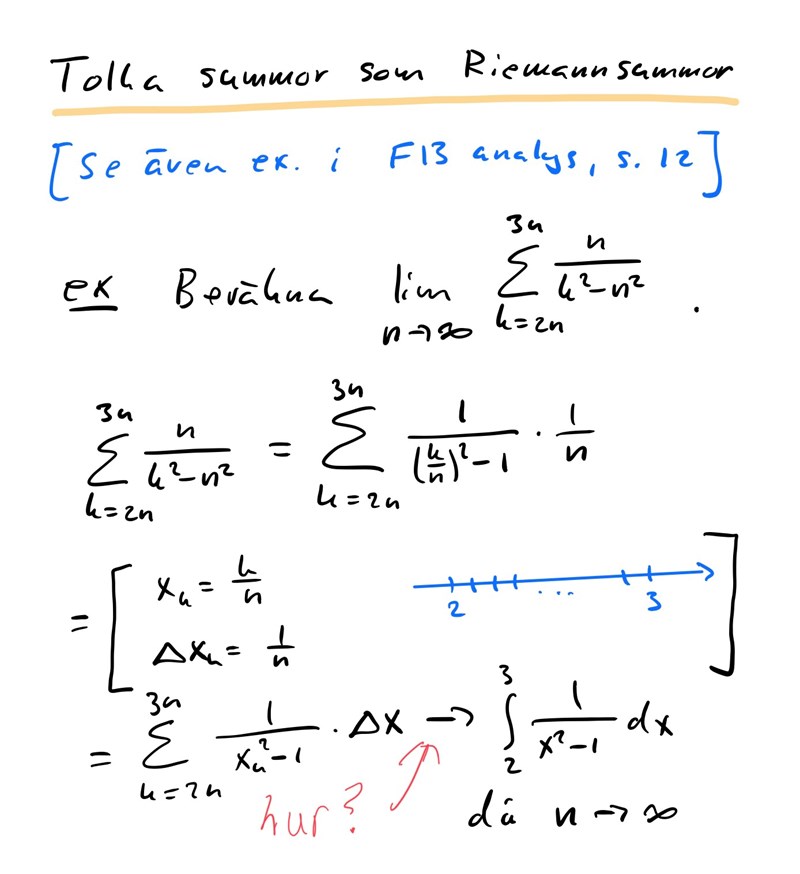 Tolka summor som Riemannsummor
[Se även ex. i F13 analys, s. 12]
ex Beräkna lim n→∞ ∑ k=2n 3n n/(k²-n²) .
∑ k=2n 3n n/(k²-n²) = ∑ k=2n 3n 1/((k/n)²-1) · 1/n
= [ xₖ = k/n
Δxₖ = 1/n
2 ... 3 ]
= ∑ k=2n 3n 1/(xₖ²-1) · Δx → ∫ 2 3 1/(x²-1) dx
hur?
då n→∞